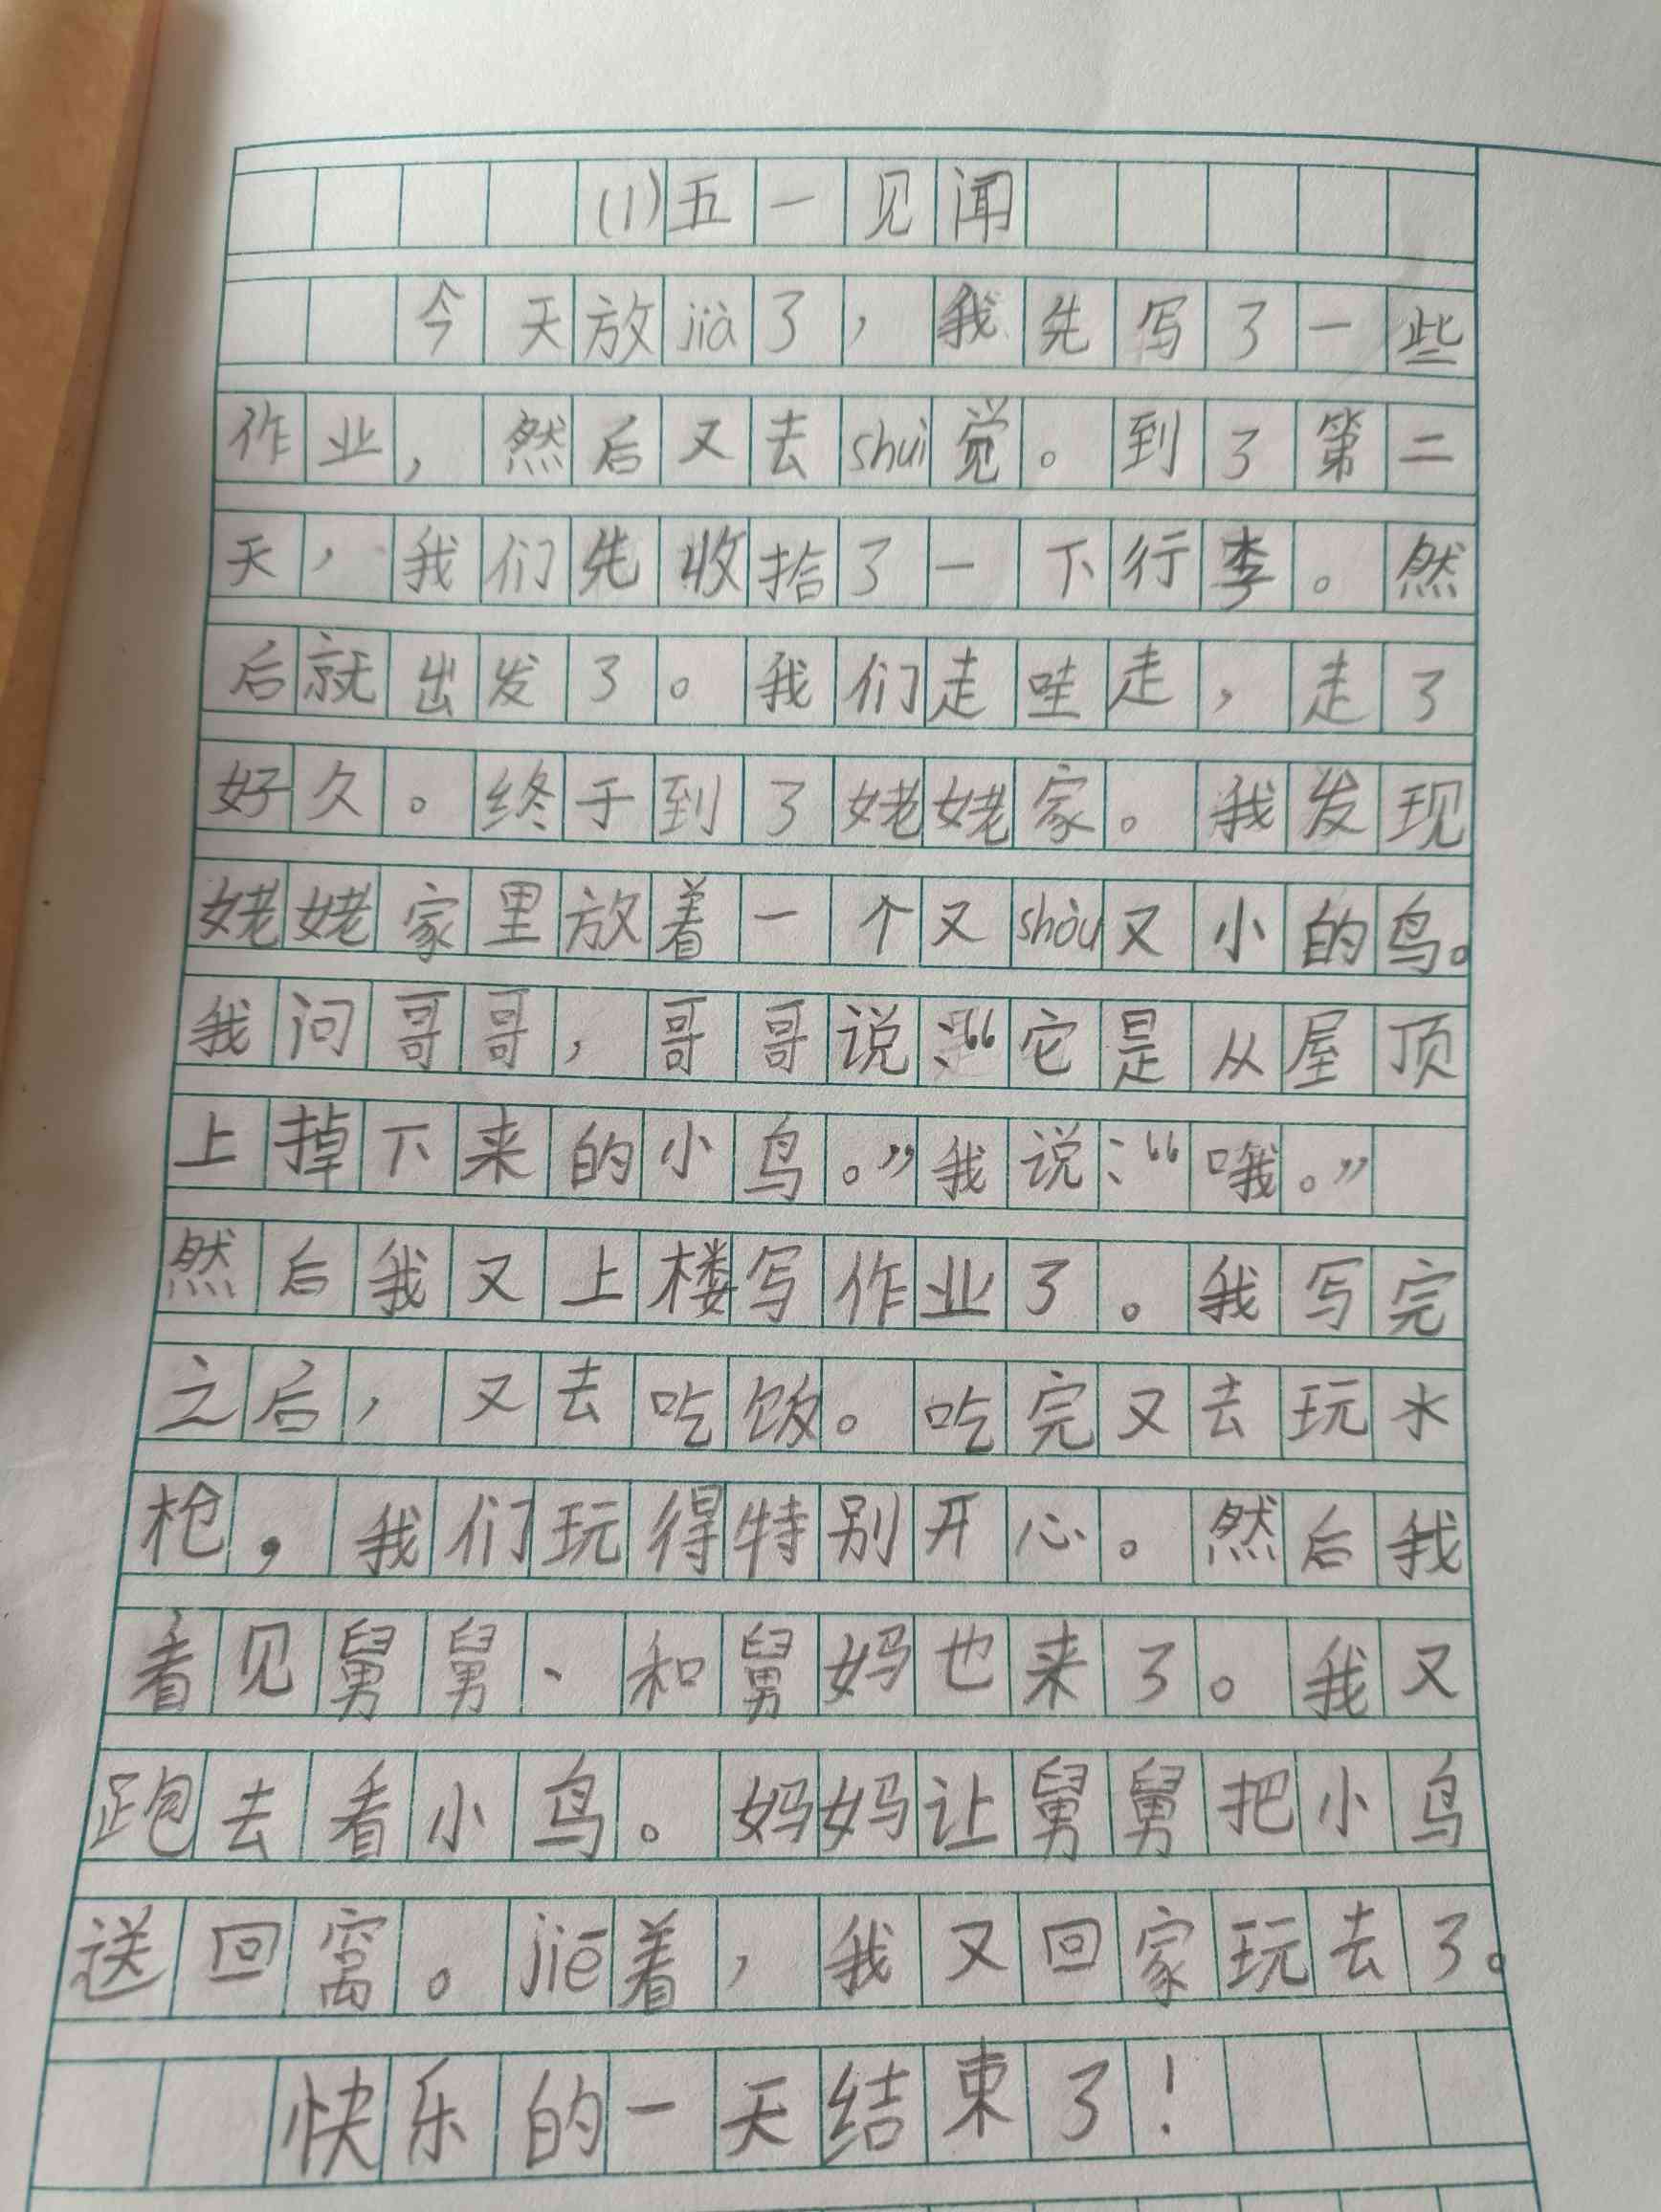 (1)五一见闻
今天放jià了，我先写了一些
作业，然后又去shuì觉。到了第二
天，我们先收拾了一下行李。然
后就出发了。我们走哇走，走了
好久。终于到了姥姥家。我发现
姥姥家里放着一个又shòu又小的鸟。
我问哥哥，哥哥说：“它是从屋顶
上掉下来的小鸟。”我说：“哦。”
然后我又上楼写作业了。我写完
之后，又去吃饭。吃完又去玩水
枪，我们玩得特别开心。然后我
看见舅舅、和舅妈也来了。我又
跑去看小鸟。妈妈让舅舅把小鸟
送回窝。jiē着，我又回家玩去了。
快乐的一天结束了！